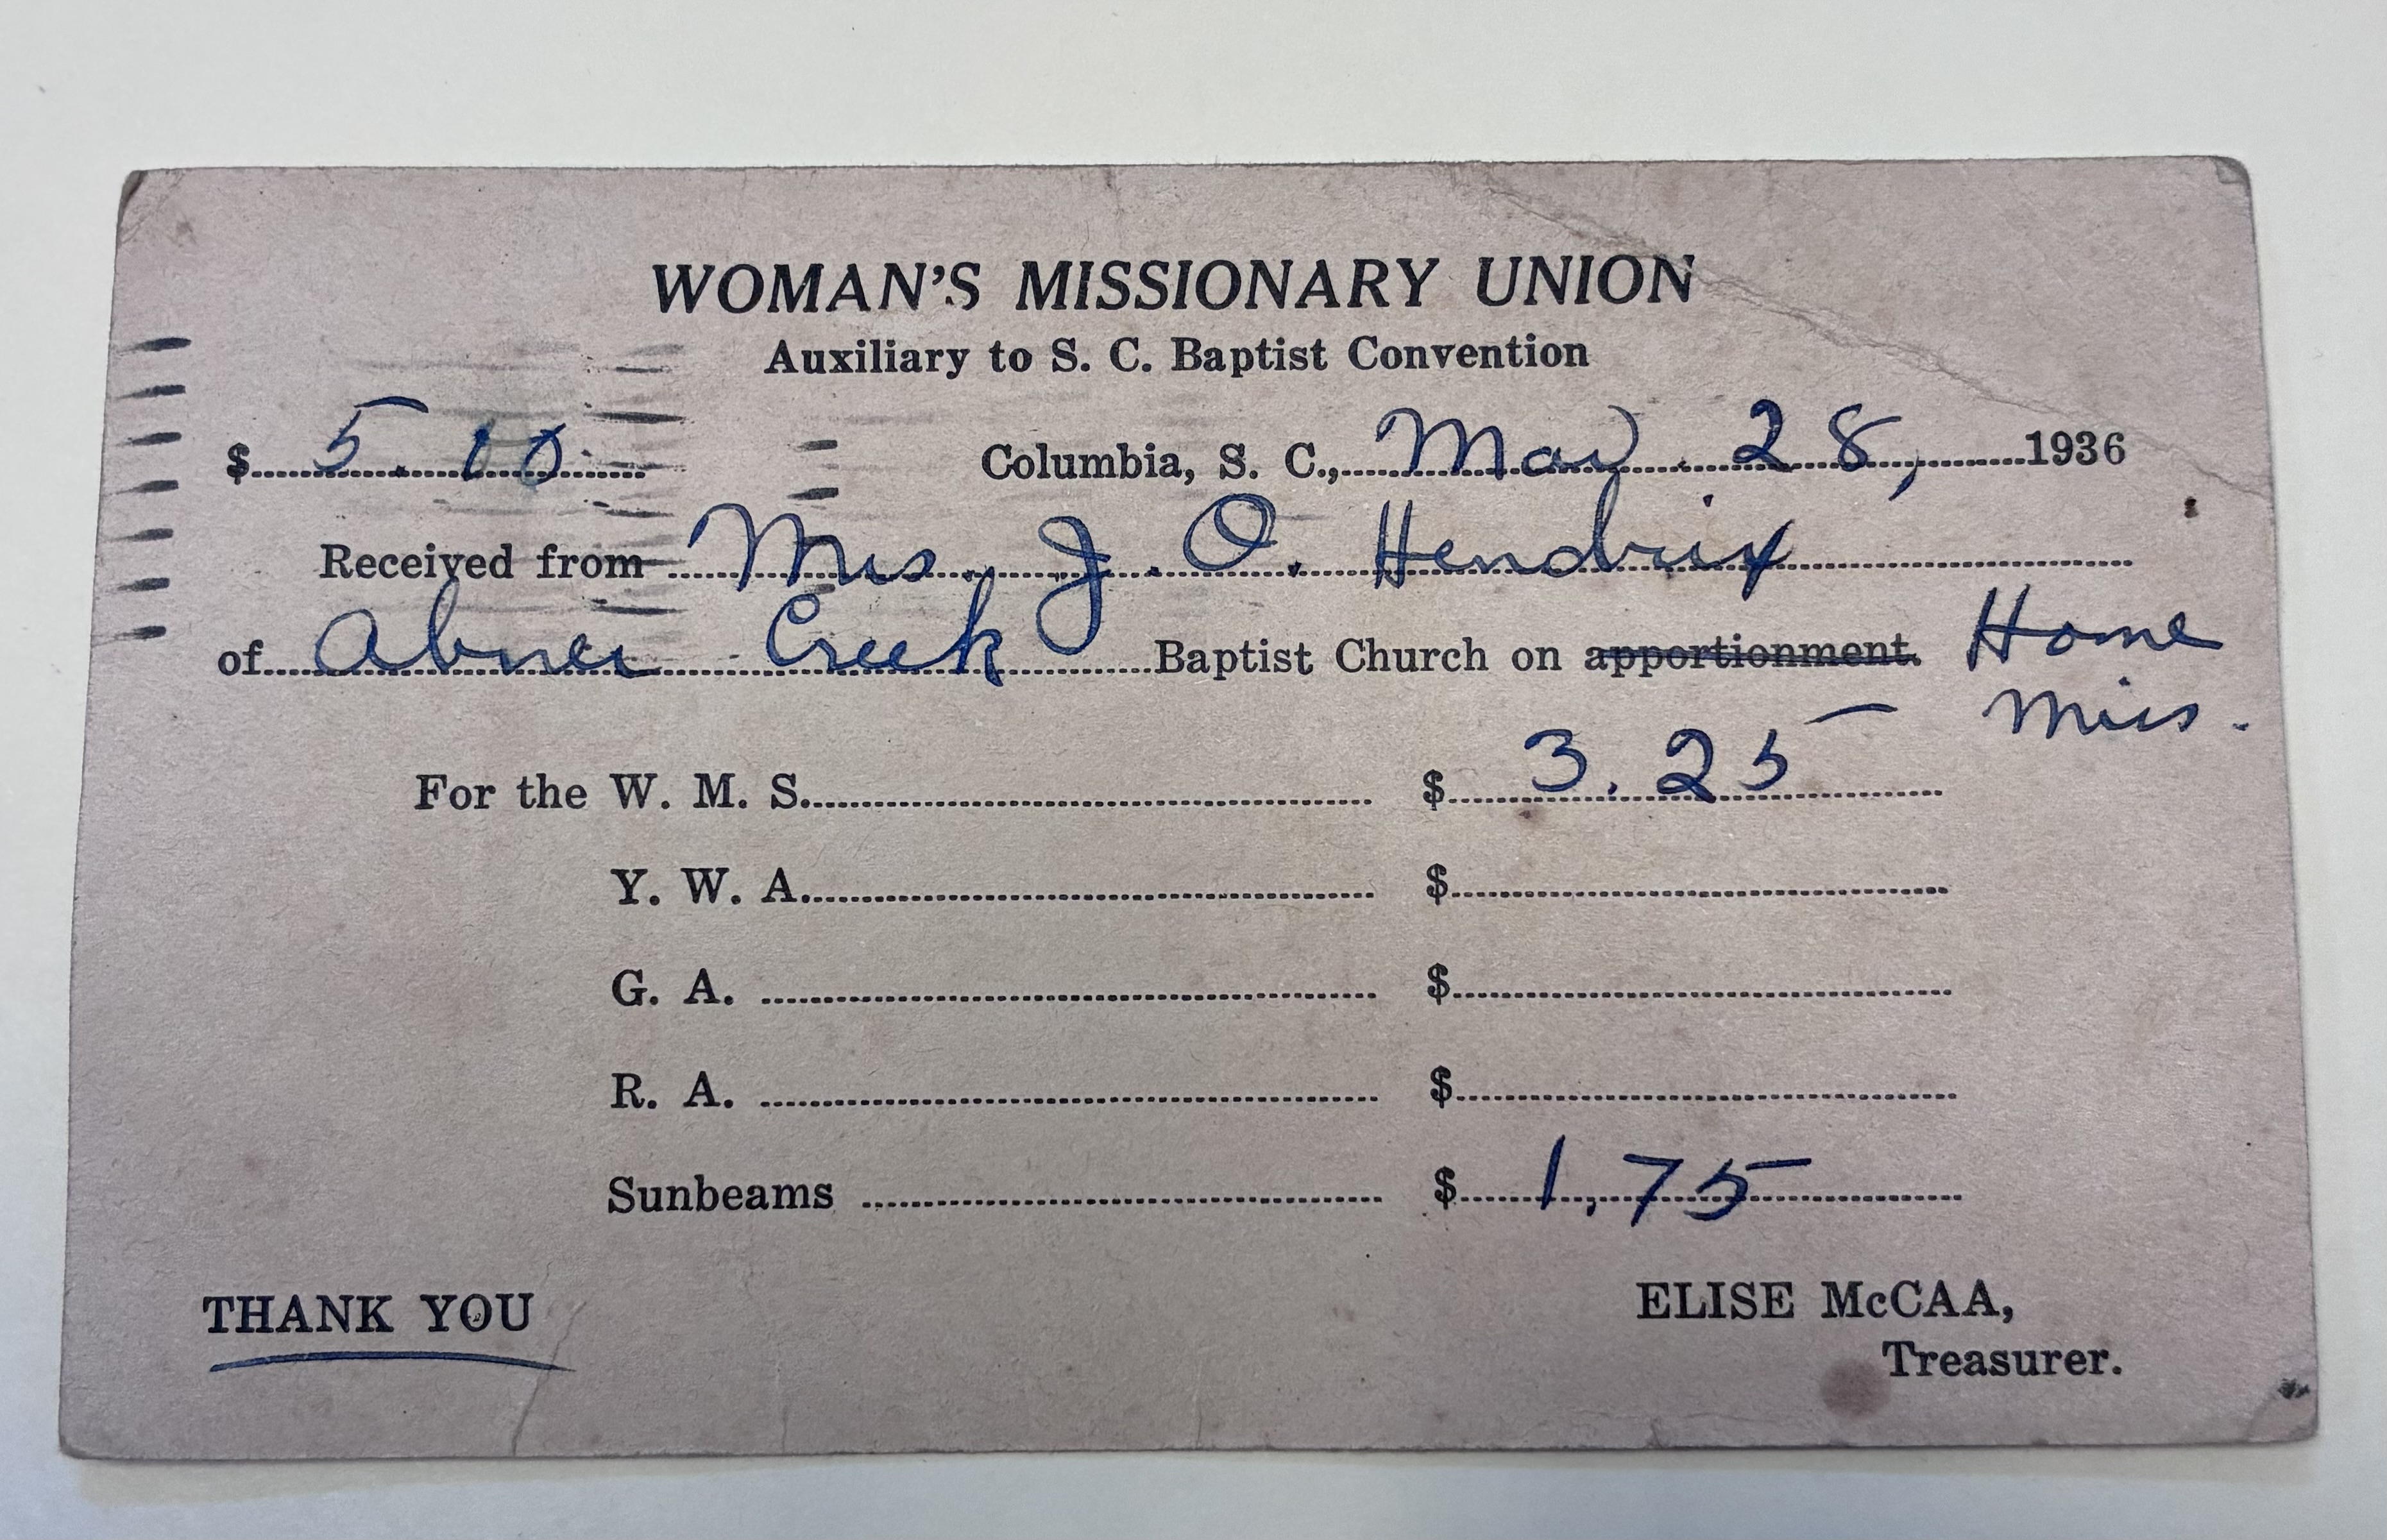 WOMAN'S MISSIONARY UNION
Auxiliary to S. C. Baptist Convention
$ 5.00 Columbia, S. C., Mar. 28, 1936
Received from Mrs. J. O. Hendrix
of Abner Creek Baptist Church on apportionment. Home
Miss.
For the W. M. S. $ 3.25
Y. W. A. $
G. A. $
R. A. $
Sunbeams $ 1.75
THANK YOU
ELISE McCAA,
Treasurer.